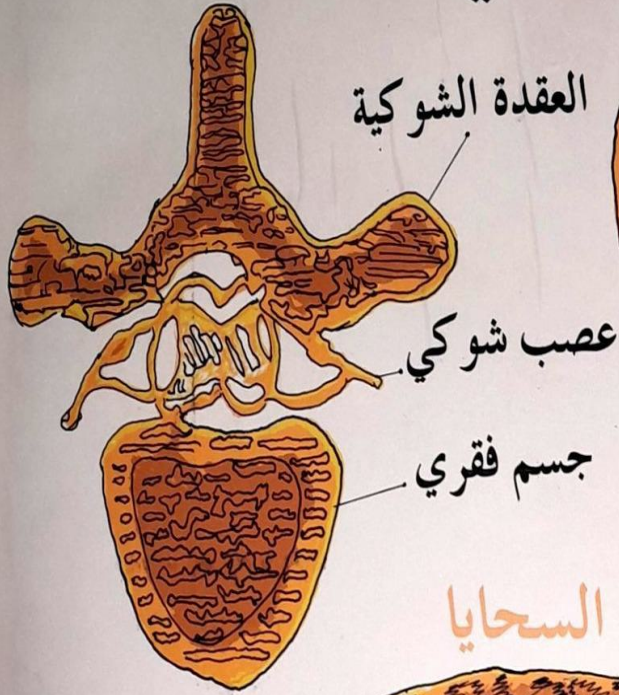 العقدة الشوكية
عصب شوكي
جسم فقري
السحايا